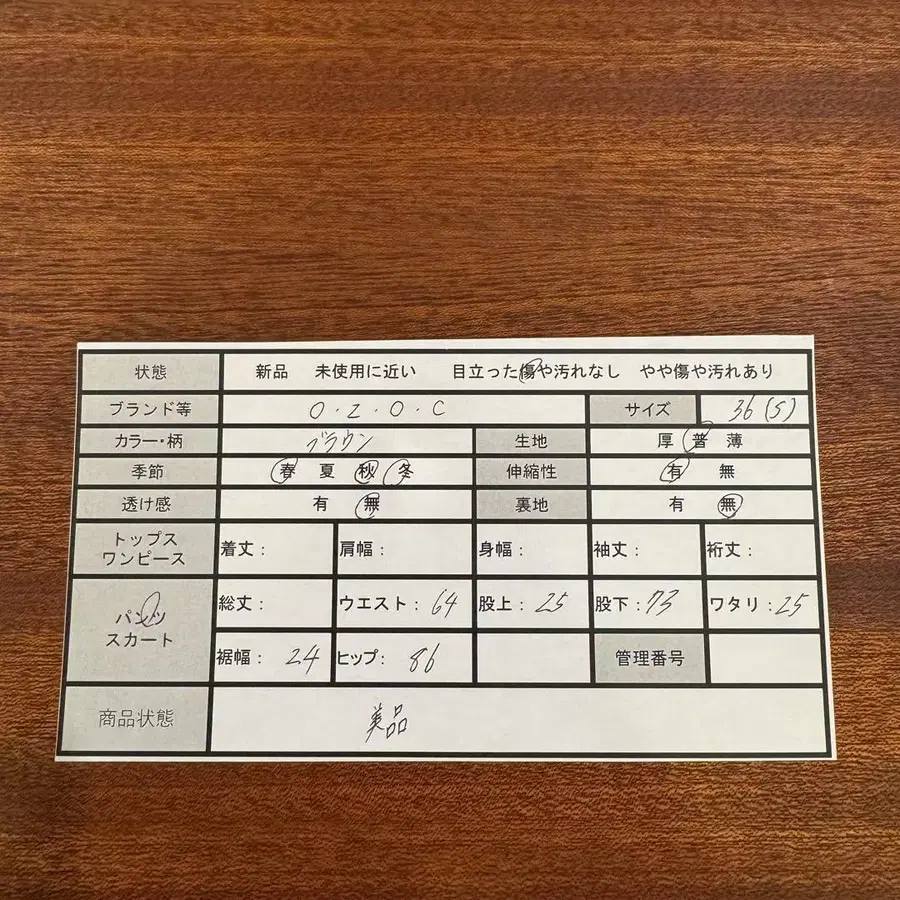 状態 新品 未使用に近い 目立った傷や汚れなし やや傷や汚れあり
ブランド等 O.Z.O.C サイズ 36(S)
カラー・柄 ブラウン 生地 厚 普 薄
季節 春 夏 秋 冬 伸縮性 有 無
透け感 有 無 裏地 有 無
トップス
ワンピース 着丈: 肩幅: 身幅: 袖丈: 裄丈:
パンツ
スカート 総丈: ウエスト:64 股上:25 股下:73 ワタリ:25
裾幅:24 ヒップ:86 管理番号
商品状態 美品